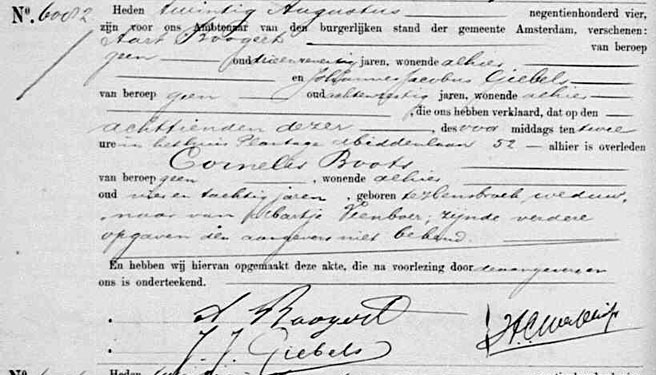 No. 6082 Heden twintig Augustus negentienhonderd vier,
zijn voor ons Ambtenaar van den burgerlijken stand der gemeente Amsterdam, verschenen:
Aart Boogert van beroep
geen oud jaren, wonende alhier
en Johannes Jacobus Ciebels
van beroep geen oud achtenzestig jaren, wonende alhier
, die ons hebben verklaard, dat op den
achttienden dezer des voormiddags ten twee
ure in het huis Plantage Middenlaan 52 alhier is overleden
Cornelis Boots
van beroep geen, wonende alhier
oud vier en tachtig jaren, geboren te weduw-
naar van Maartje Veenboer, zijnde verdere
opgaven den aangevers niet bekend.
En hebben wij hiervan opgemaakt deze akte, die na voorlezing door de aangevers en
ons is onderteekend.
A. Boogert
J. J. Ciebels
No.
Heden negentienhonderd